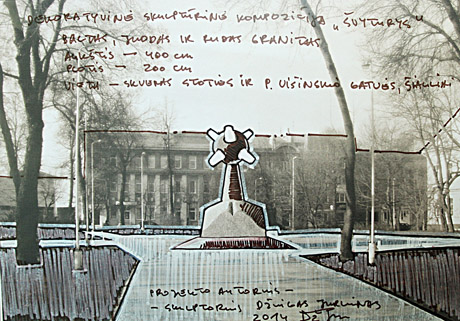 DEKORATYVINĖ SKULPTŪRINĖ KOMPOZICIJA „ŠVYTURYS“
BALTAS, JUODAS IR RUDAS GRANITAS
AUKŠTIS – 400 cm
PLOTIS – 200 cm
VIETA – SKVERAS STOTIES IR P. VIŠINSKIO GATVĖS, ŠIAULIAI
PROJEKTO AUTORIUS –
– SKULPTORIUS DŽIUGAS JURKŪNAS
2014